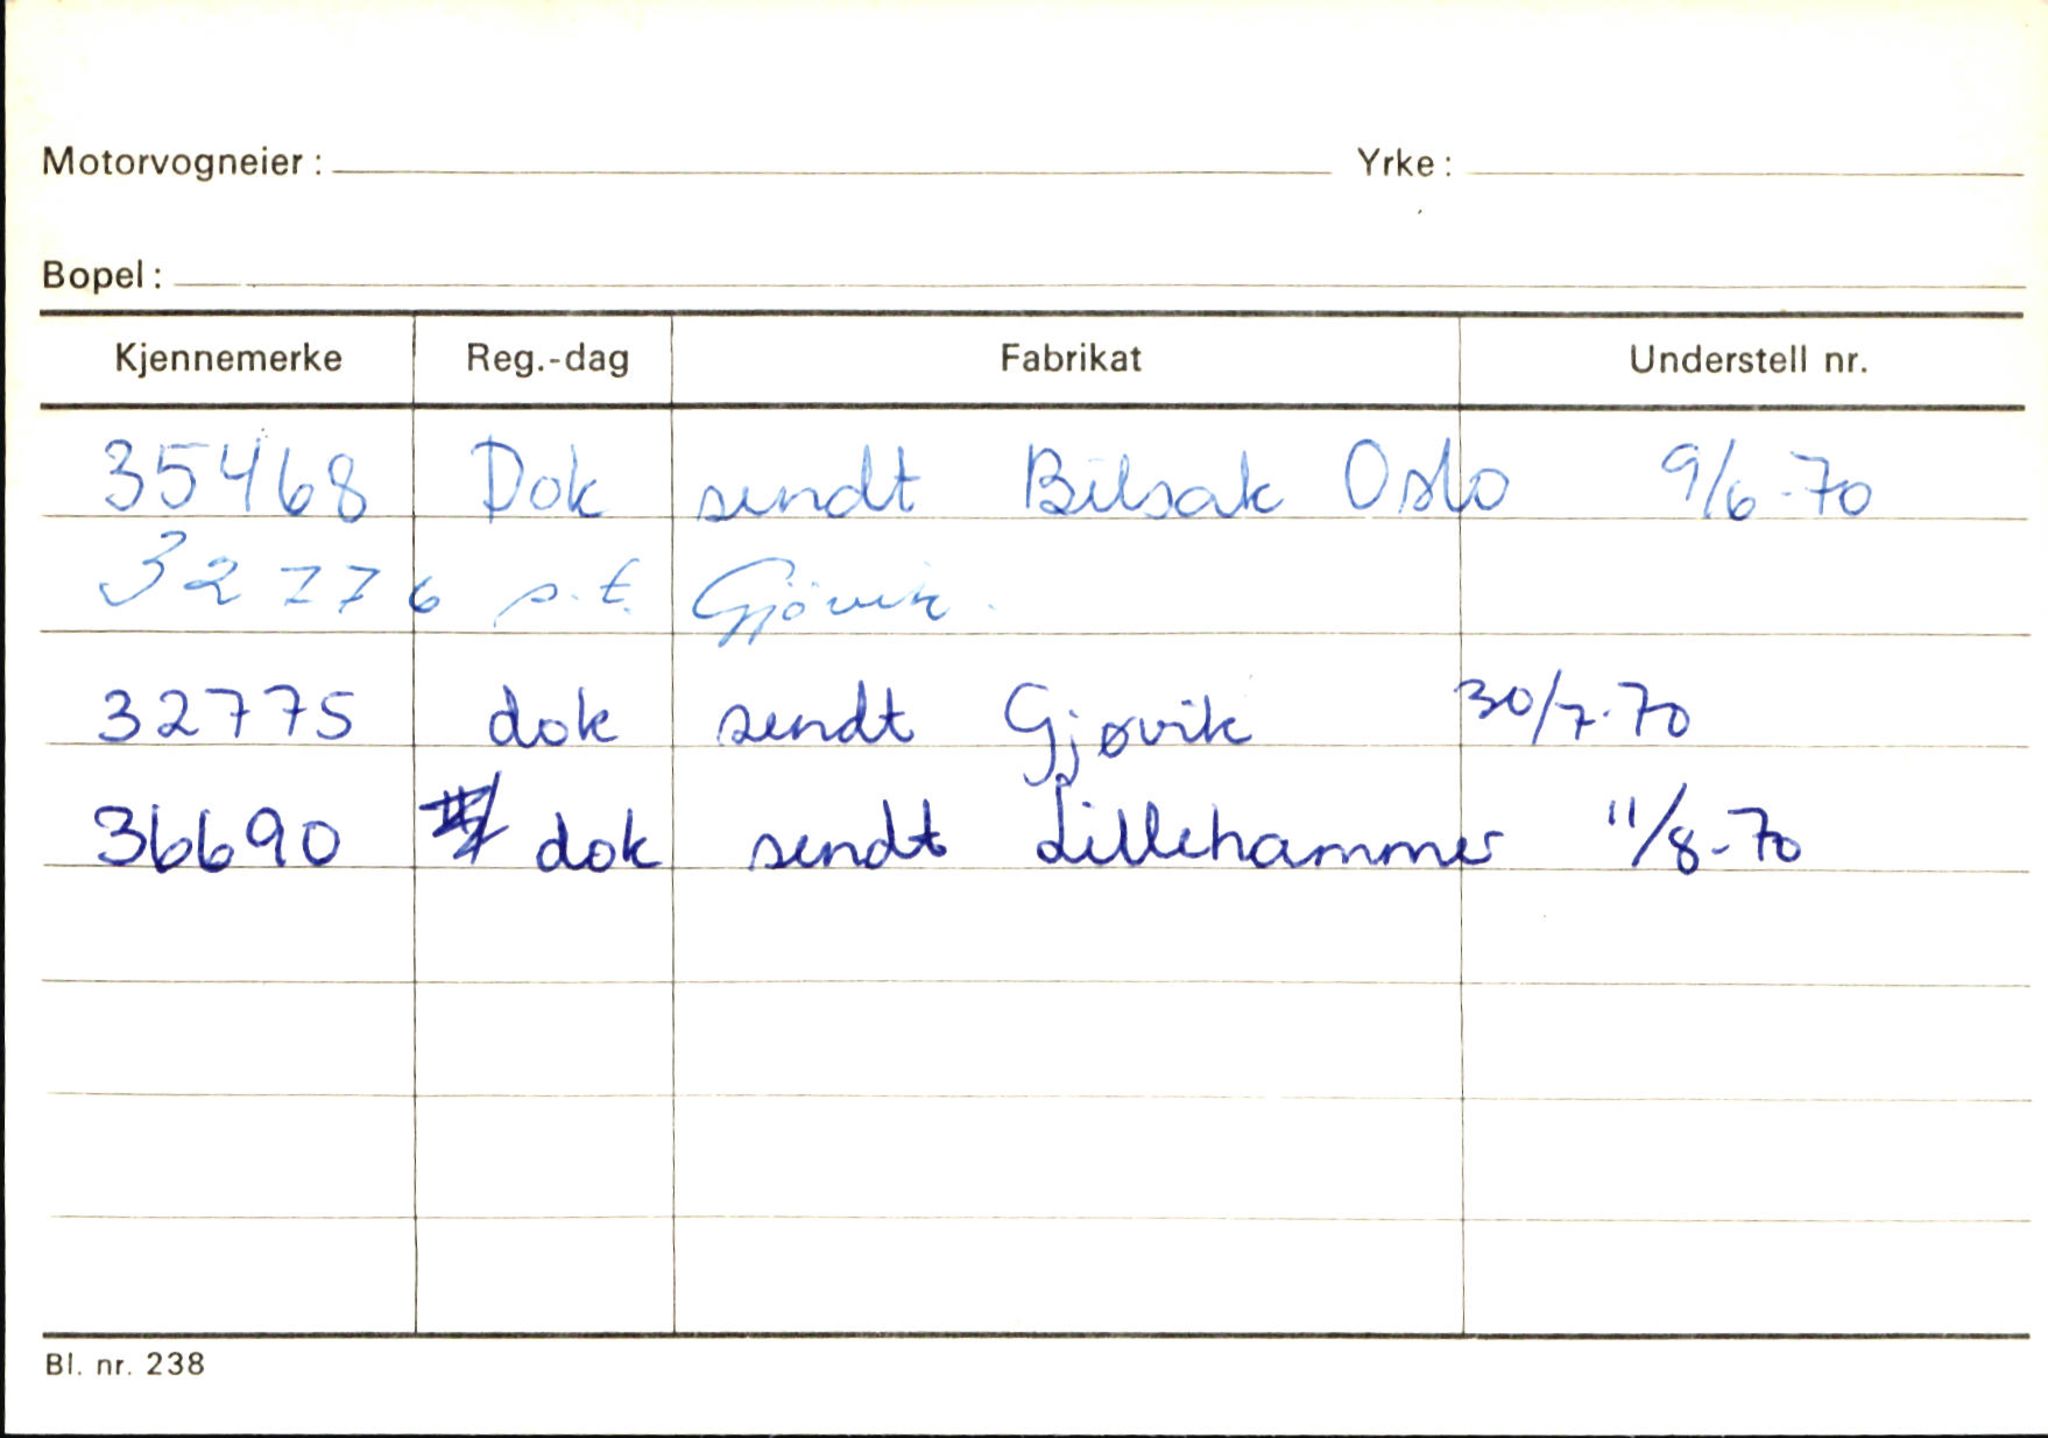 Motorvogneier: Yrke:
Bopel:
Kjennemerke Reg.-dag Fabrikat Understell nr.
35468 Dok sendt Bilsak Oslo 9/6-70
32776 s.t. Gjövik.
32775 dok sendt Gjøvik 30/7-70
36690 dok sendt Lillehammer 11/8-70
Bl. nr. 238